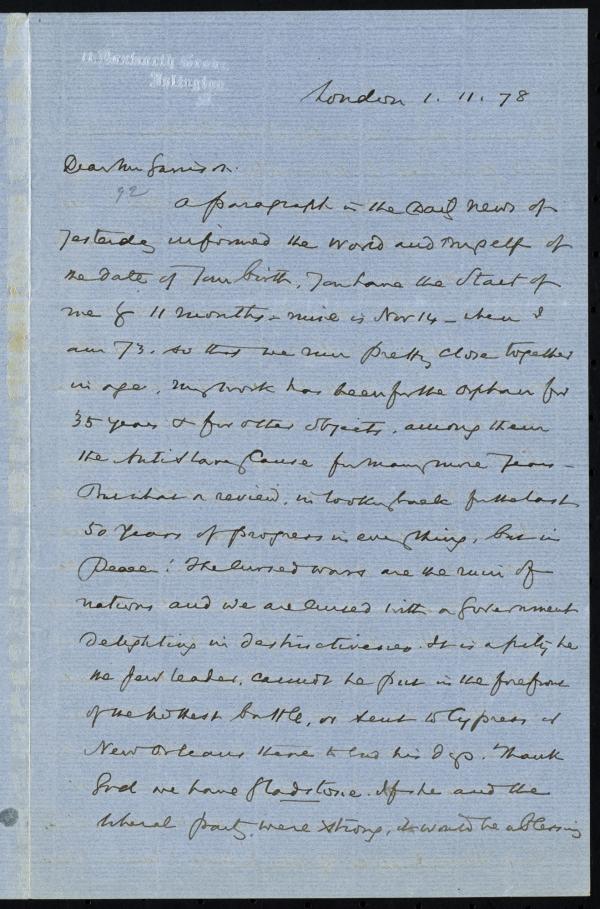 Islington
London 1. 11. 78
Dear Mr Garrison.
A paragraph in the Daily News of
Yesterday informed the world and myself of
the date of Your birth, You have the Start of
me by 11 months - mine is Nov 14 - when I
am 73. so that we run pretty close together
in age. My work has been for the Orphan for
35 years & for other objects, among them
the AntiSlavery Cause for many more Years -
But what a review, in looking back for the last
50 Years of progress in everything, but in
Peace! The cursed wars are the ruin of
nations and we are cursed with a Government
Delighting in destructiveness. It is a pity he
the Jew leader, cannot be put in the forefront
of the hottest battle, or sent to Cypress or
New Orleans there to end his days. Thank
God we have Gladstone. If he and the
liberal party were strong, it would be a blessing